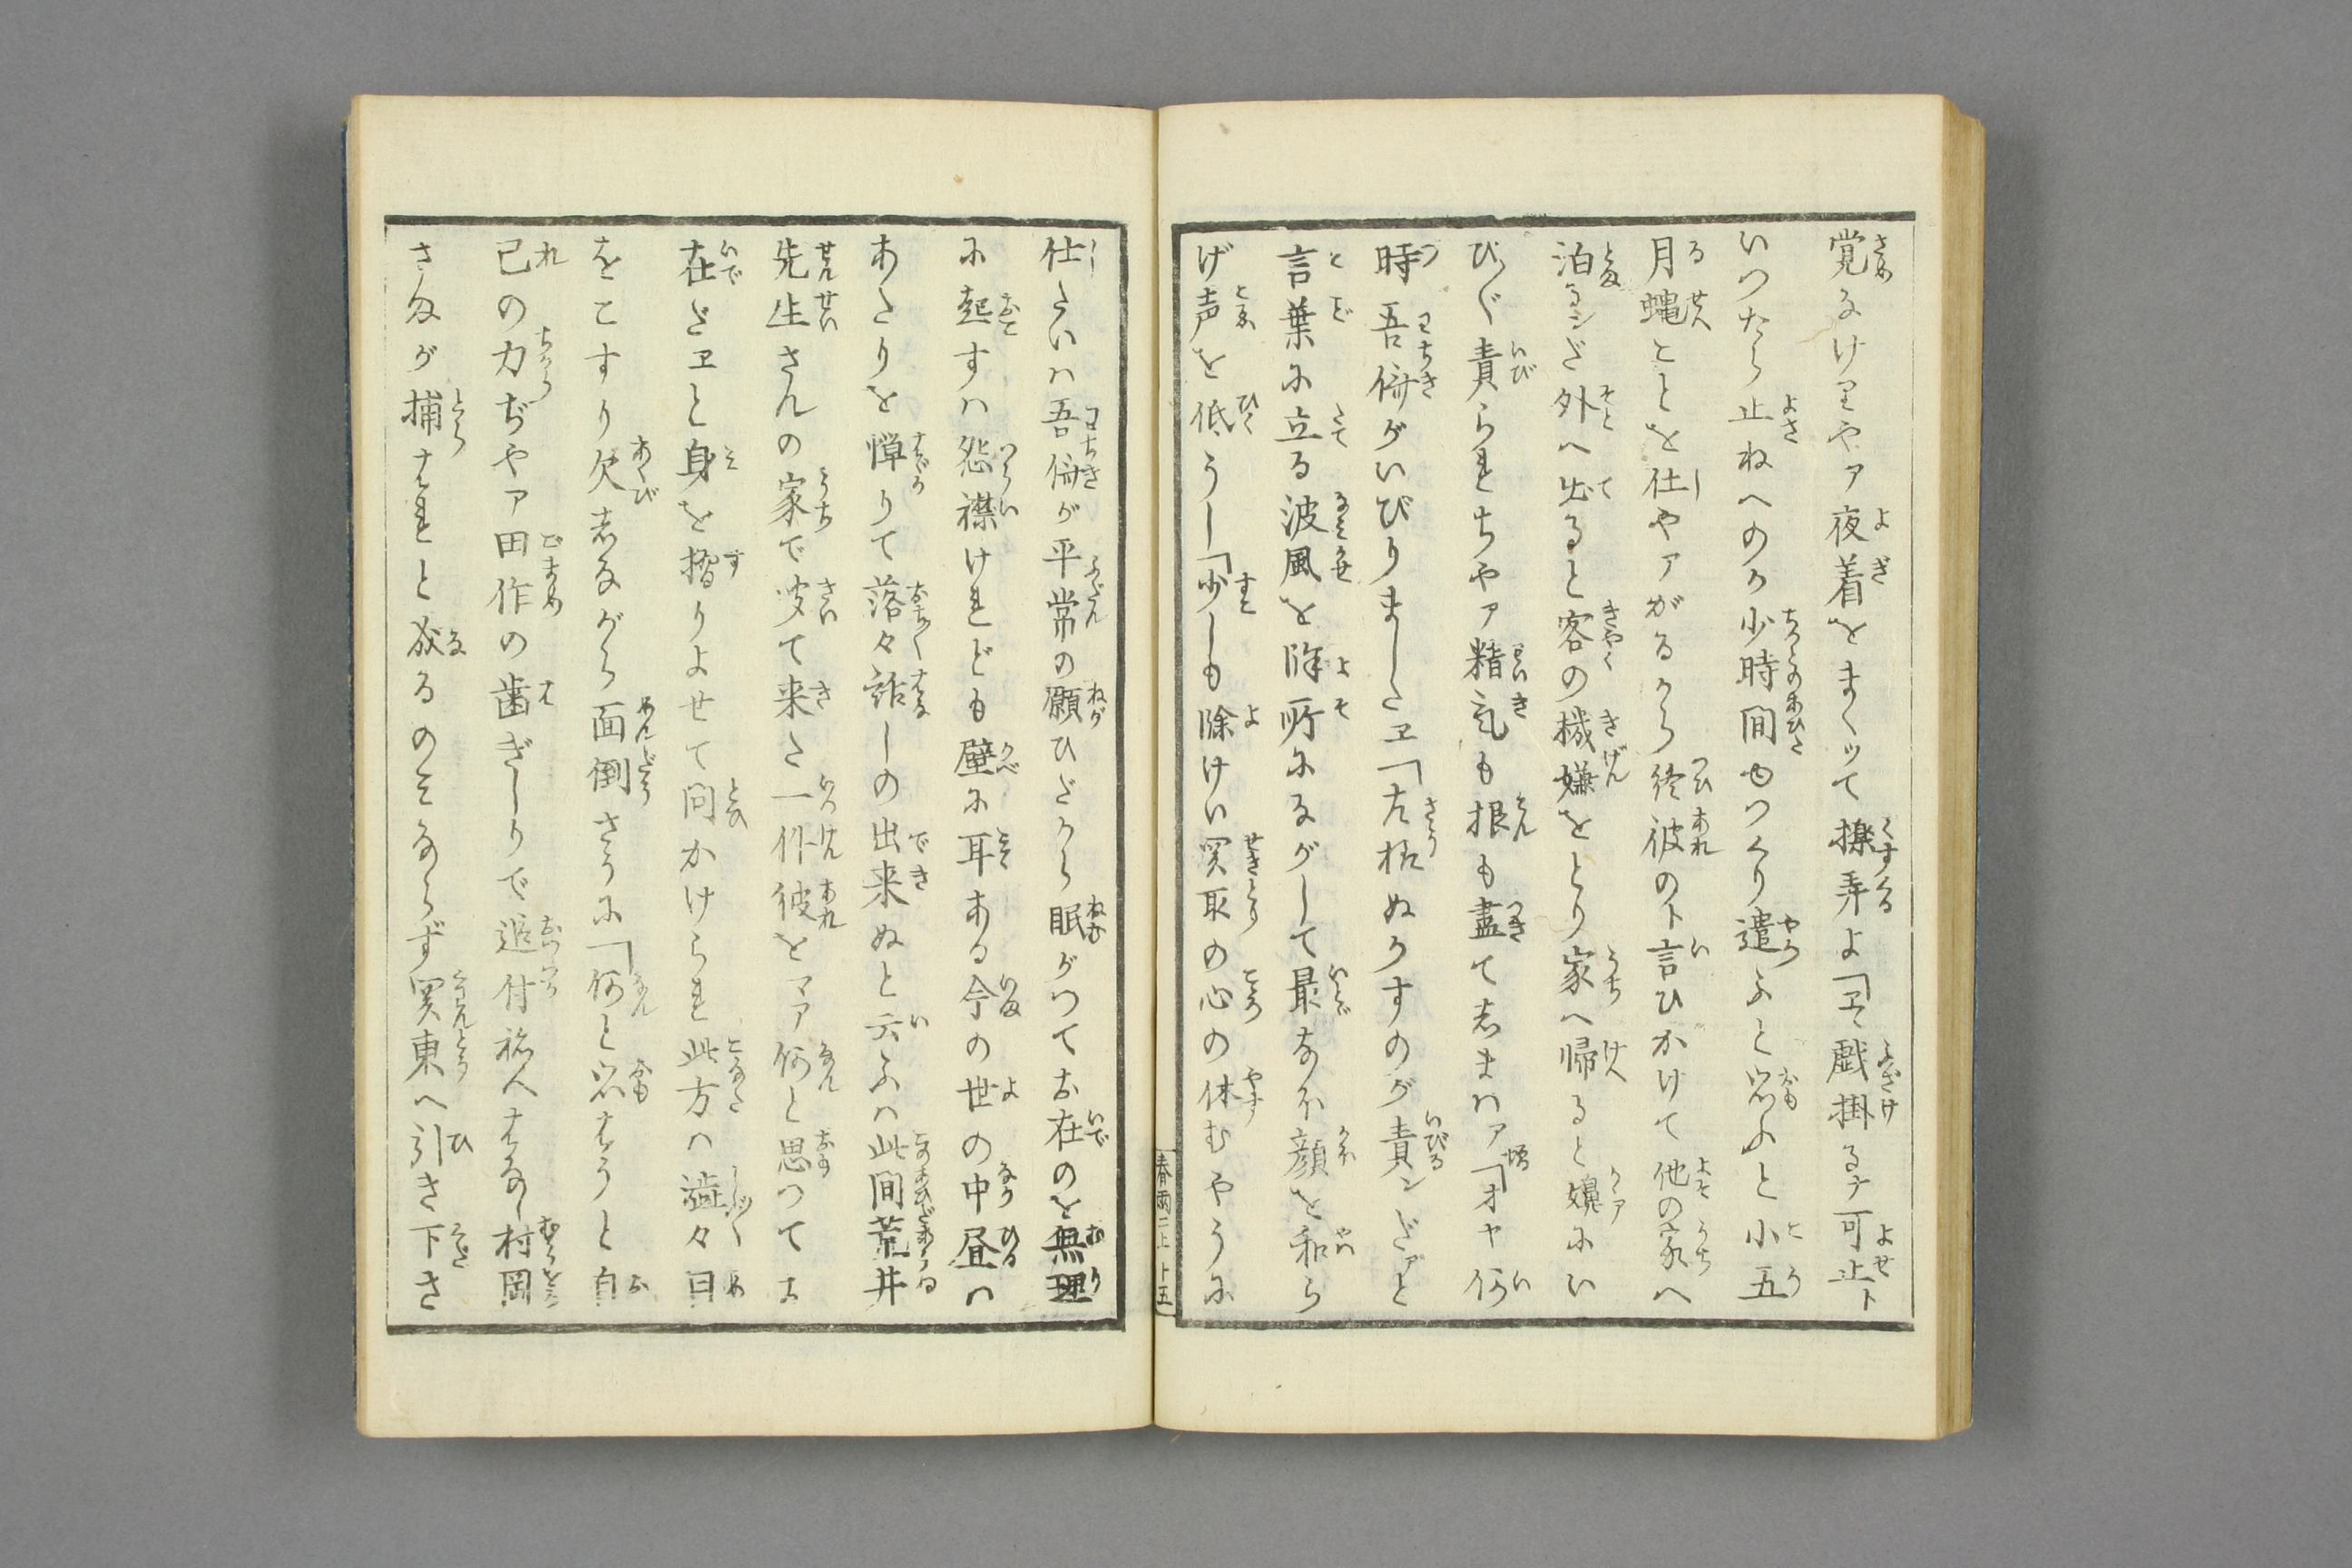 覚なけりやア夜着をまくツて擽弄よ「エヽ戯掛るナ可止ト
いつたら止ねへのか少時間もつくり遣ふと思ふと小五
月蝿ことを仕やアがるから終彼のト言ひかけて他の家へ
泊るンだ外へ出ると客の機嫌をとり家へ帰ると嬶にい
びく責られちやア精気も根も盡て志まハア「オヤ何
時吾儕がいびりましたヱ「左様ぬかすのが責ンだァと
言葉に立る波風を除所にながして最なほ顔を和ら
げ声を低うし「少しも除けい関取の心の休むやうに
春雨二上 十五
仕たいハ吾儕が平常の願ひだから眠がつてお在のを無理
に起すハ怨襟けれども壁に耳ある今の世の中昼ハ
あたりを憚りて落々話しの出来ぬと云ふハ此間荒井
先生さんの家で定て来た一件彼をマア何と思つてお
在だヱと身を摺りよせて問かけられ此方ハ澁々目
をこすり欠志ながら面倒さうに「何と思はうと自
己の力ぢやア田作の歯ぎしりで追付祐へはなし村岡
さまが捕はれと成るのみならず関東へ引き下さ